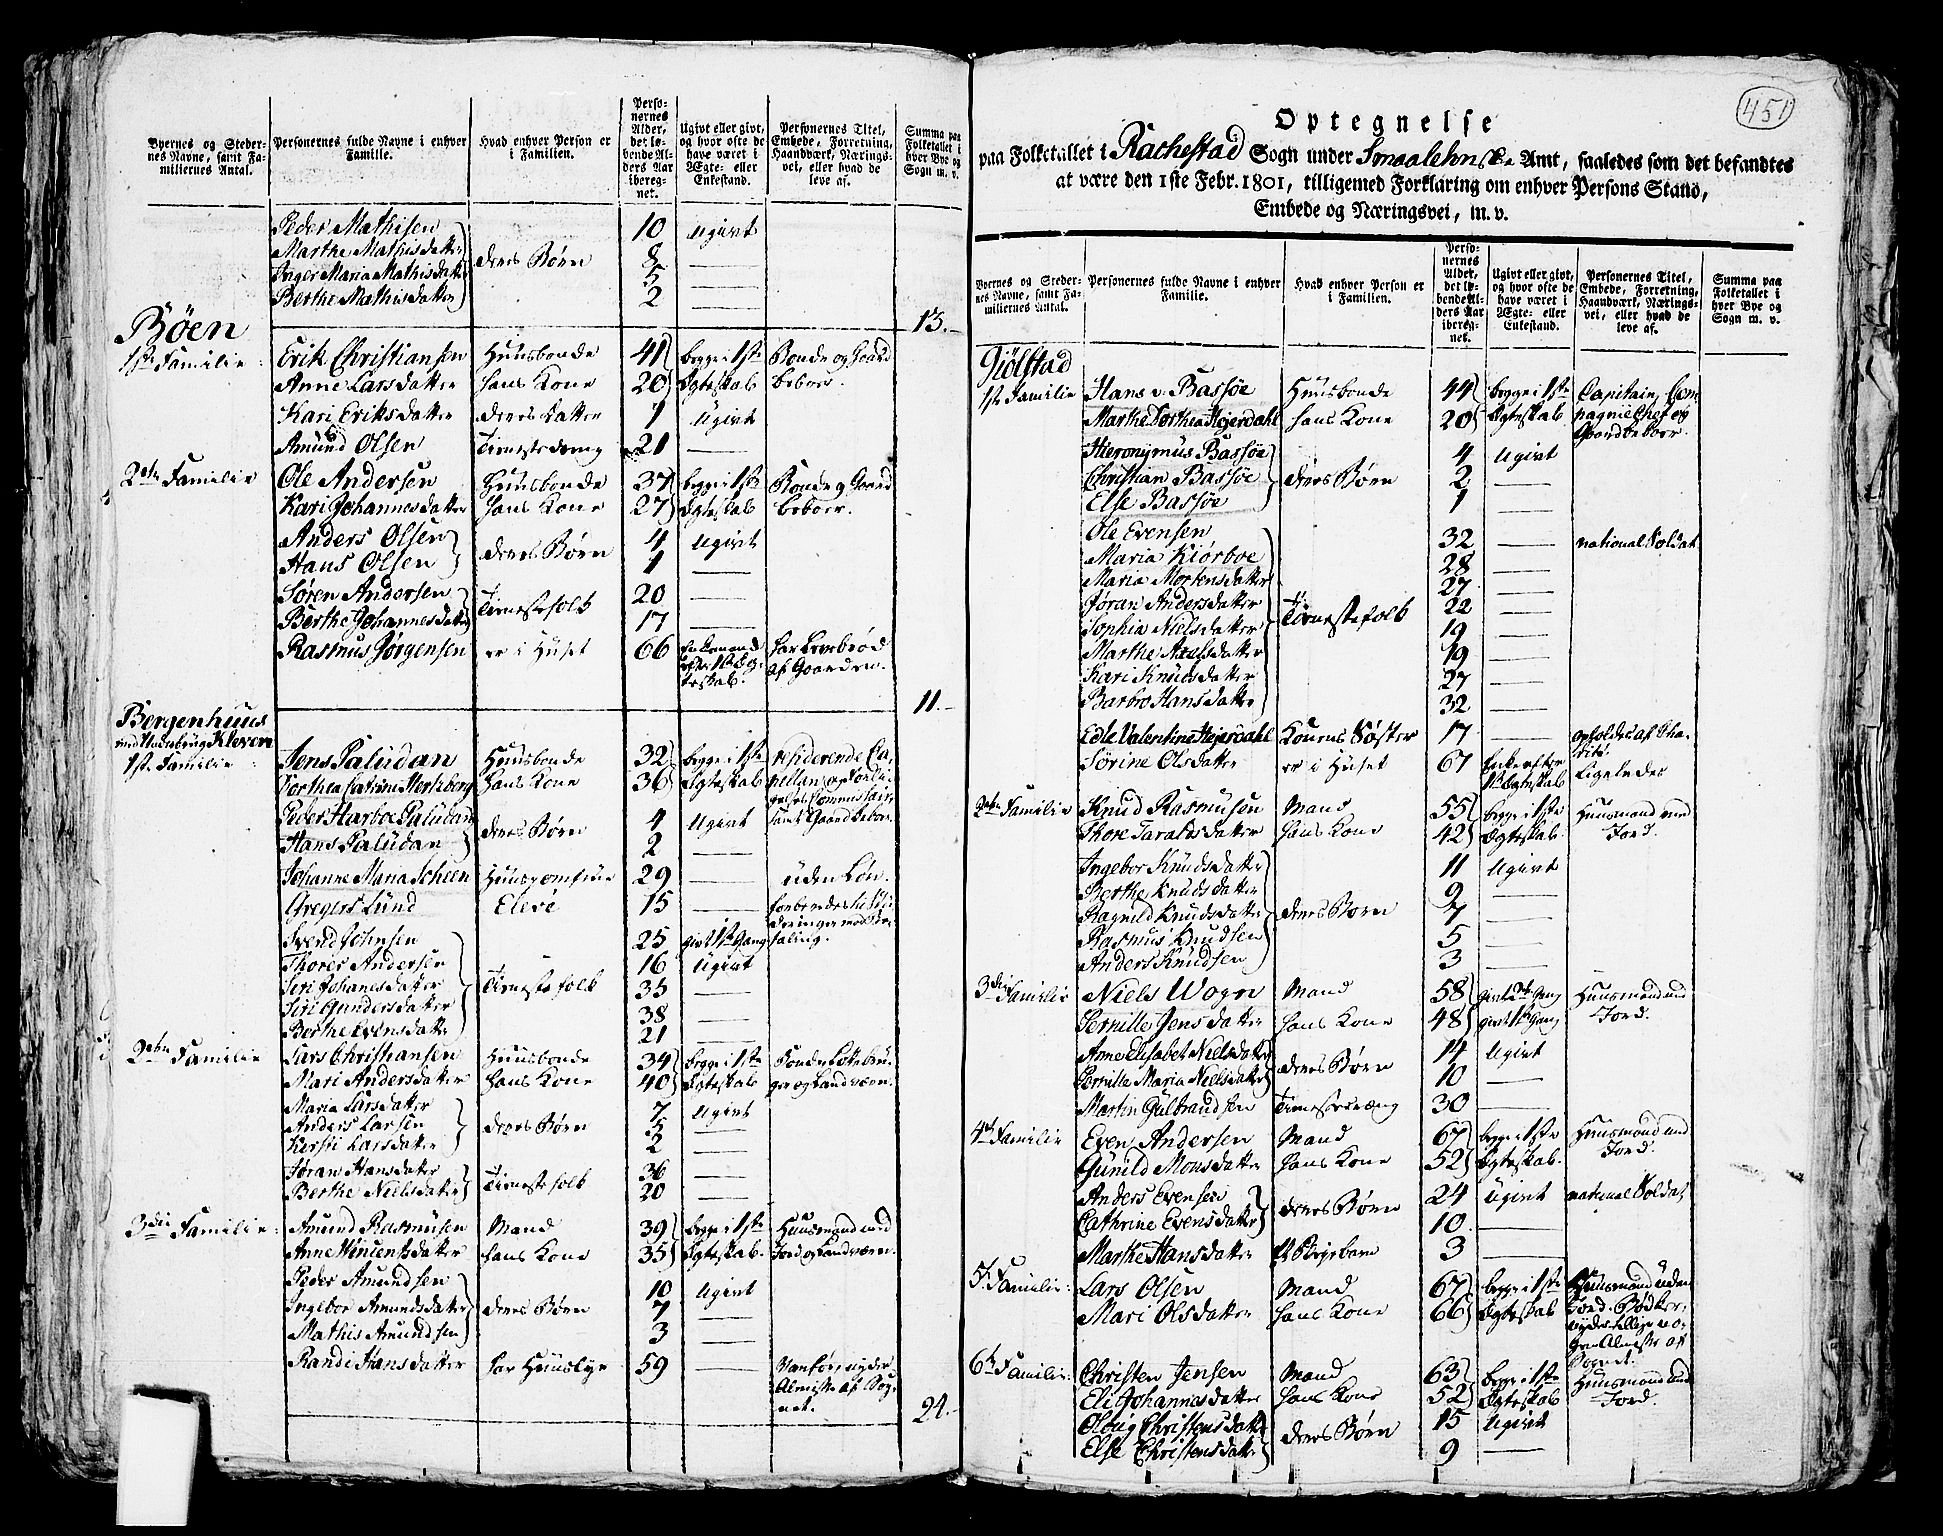 Byernes og Steder-
nes Navne, samt Fa-
miliernes Antal.
Personernes fulde Navne i enhver
Familie.
Hvad enhver Person er
i Familien.
Perso-
nernes
Alder,
det lø-
bende Al-
ders Aar
ibereg-
net.
Ugivt eller givt,
og hvor ofte de
have været i
Ægte- eller
Enkestand.
Personernes Titel,
Embede, Forretning,
Haandværk, Nærings-
vei, eller hvad de
leve af.
Summa paa
Folketallet i
hver Bye og
Sogn m. v.
Peder Mathisen 10 Ugivt
Marthe Mathisdatter 8
Inger Maria Mathisdatter deres Børn 5
Berthe Mathisdatter 2
13.
Böen
1ste Familie Erik Christiansen Huusbonde 41 begge i 1ste Bonde og Gaard
Anne Larsdatter hans Kone 20 Ægteskab beboer.
Kari Eriksdatter deres Datter 1 Ugivt
Amund Olsen Tienestedreng 21
2den Familie Ole Andersen Huusbonde 37 begge i 1ste Bonde og Gaard
Kari Johannesdatter hans Kone 27 Ægteskab beboer.
Anders Olsen 4 Ugivt
Hans Olsen deres Børn 1
Søren Andersen 20
Berthe Johannesdatter Tienestefolk 17
Rasmus Jørgensen er i Huset 66 Enkemand har Levebrød
efter 1ste Æg- af Gaarden.
teskab.
11.
Bergenhuus
med Underbrug Kleven
1ste Familie Jens Paludan Huusbonde 32 begge i 1ste residerende Ca-
Dorthea Catrine Hertzberg hans Kone 36 Ægteskab pellan, og Forli-
gelses Commissair,
Peder Harboe Paludan 4 Ugivt samt Gaardbeboer.
Hans Paludan deres Børn 2
Johanne Maria Scheen Huusjomfrue 29 uden Løn.
Gregers Lund Eleve 15
Svend Johnsen 25 givt 1ste Gang
Thores Andersen 16 Ugivt
Siri Johanesdatter Tienestefolk 35
Siri Gundersdatter 38
Berthe Evensdatter 21
2den Familie Lars Christiansen Huusbonde 34 begge i 1ste
Mari Andersdatter hans Kone 40 Ægteskab
Maria Larsdatter 7 Ugivt
Anders Larsen deres Børn 5
Kersti Larsdatter 2
Jøran Hansdatter 36
Berthe Nielsdatter Tienestefolk 20
3die Familie Amund Rasmusen Mand 39 begge i 1ste Huusmand med
Anne Vincentsdatter hans Kone 35 Ægteskab. Jord og Landværn.
Peder Amundsen 10 Ugivt
Ingebor Amundsdatter deres Børn 7
Mathis Amundsen 3
Randi Hansdatter for Huuslye 59 Vanfør, nyder
Almisse af Sog-
net.
24.
451
Optegnelse
paa Folketallet i Rachestad Sogn under Smaalehnske Amt, saaledes som det befandtes
at være den 1ste Febr. 1801, tilligemed Forklaring om enhver Persons Stand,
Embede og Næringsvei, m. v.
Byernes og Steder-
nes Navne, samt Fa-
miliernes Antal.
Personernes fulde Navne i enhver
Familie.
Hvad enhver Person er
i Familien.
Perso-
nernes
Alder,
det lø-
bende Al-
ders Aar
ibereg-
net.
Ugivt eller givt,
og hvor ofte de
have været i
Ægte- eller
Enkestand.
Personernes Titel,
Embede, Forretning,
Haandværk, Nærings-
vei, eller hvad de
leve af.
Summa paa
Folketallet i
hver Bye og
Sogn m. v.
Giölstad
1ste Familie Hans v. Bassøe Huusbonde 44 begge i 1ste Capitain, Com
Marthe Dorthea Hejerdahl hans Kone 20 Ægteskab pagnie Chef og
Gaardbeboer.
Hieronymus Bassøe 4 Ugivt
Christian Bassøe deres Børn 2
Else Bassøe 1
Ole Evensen 32 national Soldat
Maria Kiørboe 28
Maria Mortensdatter 27
Jøran Andersdatter Tienestefolk 22
Sophia Nielsdatter 19
Marthe Axelsdatter 19
Kari Knudsdatter 27
Barbro Hansdatter 32
Edle Valentine Hejerdahl Konens Søster 17 opholdes af Cha-
rité.
Sörine Olsdatter er i Huset 67 Enke efter Ligeledes
1ste Ægteskab
2den Familie Knud Rasmusen Mand 55 begge i 1ste Huusmand med
Thore Taraldsdatter hans Kone 42 Ægteskab. Jord.
Ingebor Knudsdatter 11 Ugivt
Berthe Knudsdatter 9
Ragnild Knudsdatter deres Børn 7
Rasmus Knudsen 5
Anders Knudsen 3
3die Familie Niels Wogn Mand 58 givt 2den Gang Huusmand med
Pernille Jensdatter hans Kone 48 givt 1ste Gang Jord.
Anne Elisabet Nielsdatter 14 Ugivt
Pernille Maria Nielsdatter deres Børn 10
Martin Gulbrandsen Tienestedreng 30
4de Familie Even Andersen Mand 67 begge i 1ste Huusmand med
Gunild Monsdatter hans Kone 52 Ægteskab. Jord.
Anders Evensen 24 Ugivt national Soldat
Cathrine Evensdatter deres Børn 10
Marthe Hansdatter et Plejebarn 3
5te Familie: Lars Olsen Mand 67 begge i 1ste Huusmand uden
Mari Olsdatter hans Kone 66 Ægteskab Jord. Bødker,
nyder tillige no-
gen Almisse af
Sognet.
6te Familie: Christen Jensen Mand 63 begge i 1ste Huusmand med
Eli Johannesdatter hans Kone 52 Ægteskab Jord.
Olong Christensdatter 15 Ugivt
Else Christensdatter deres Børn 9